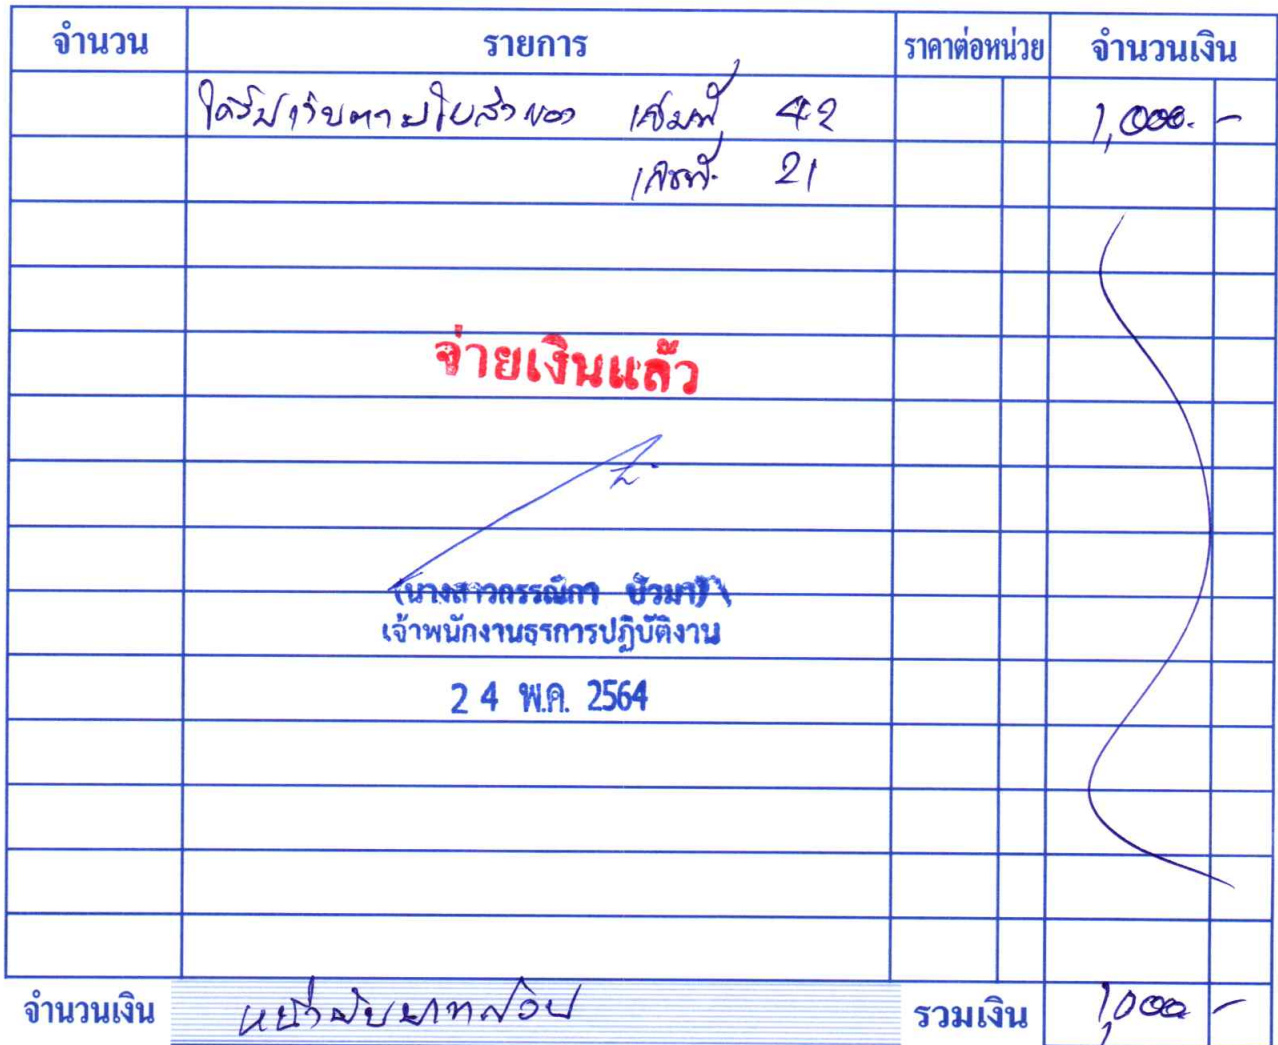 จำนวน รายการ ราคาต่อหน่วย จำนวนเงิน
ได้รับเงินตามใบส่งของ เล่มที่ 42 1,000.-
เลขที่ 21
จ่ายเงินแล้ว
(นางสาวกรรณิกา บัวมา)
เจ้าพนักงานธุรการปฏิบัติงาน
24 พ.ค. 2564
จำนวนเงิน หนึ่งพันบาทถ้วน รวมเงิน 1,000 -